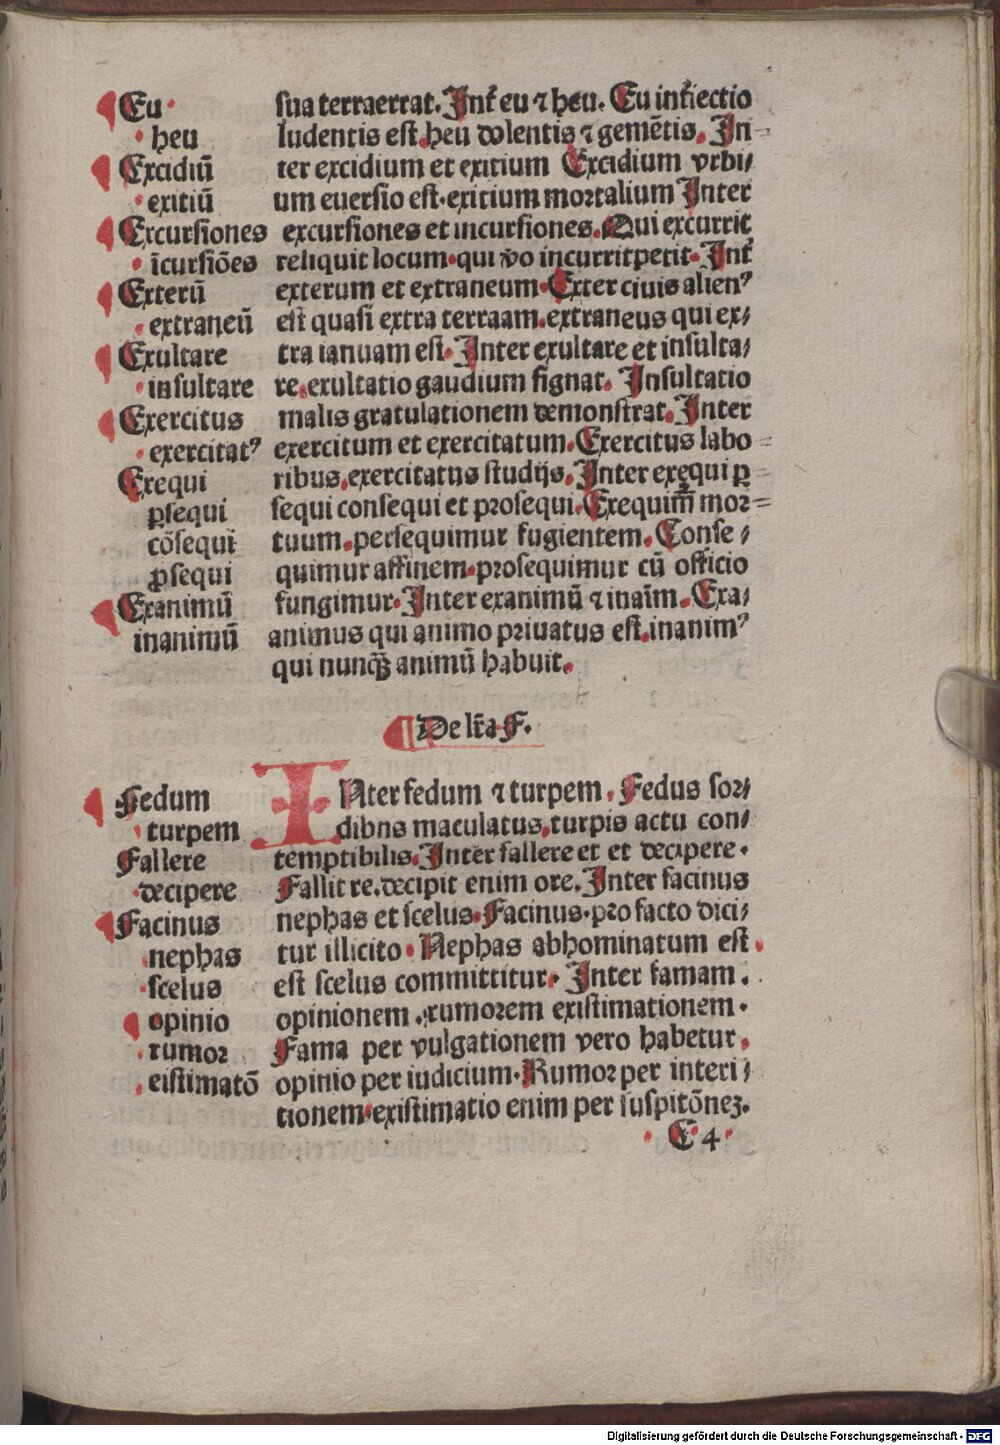 Eu
heu
Excidiū
exitiū
Excursiones
īcursiōes
Exterū
extraneū
Exultare
insultare
Exercitus
exercitatꝰ
Exequi
ꝑsequi
cōsequi
ꝓsequi
Exanimū
inanimū
sua terraerrat. Int̄ eu ⁊ heu. Eu int̄iectio
ludentis est heu dolentis ⁊ gemētis. In-
ter excidium et exitium Excidium vrbi/
um euersio est. exitium mortalium Inter
excursiones et incursiones. Qui excurrit
reliquit locum. qui v̄o incurrit petit. Int̄
exterum et extraneum. Exter ciuis alienꝰ
est quasi extra terraam. extraneus qui ex/
tra ianuam est. Inter exultare et insulta/
re. exultatio gaudium signat. Insultatio
malis gratulationem demonstrat. Inter
exercitum et exercitatum. Exercitus labo=
ribus. exercitatus studijs. Inter exequi ꝑ=
sequi consequi et prosequi. Exequim̄ mor=
tuum. persequimur fugientem. Conse/
quimur affinem. prosequimur cū officio
fungimur. Inter exanimū ⁊ inaīm. Exa/
animus qui animo priuatus est. inanimꝰ
qui nunqꝫ animū habuit.
De lr̄a F.
Fedum
turpem
Fallere
decipere
Facinus
nephas
scelus
opinio
rumor
eistimatō
INter fedum ⁊ turpem. Fedus sor/
dibns maculatus. turpis actu con/
temptibilis. Inter fallere et et decipere.
Fallit re. decipit enim ore. Inter facinus
nephas et scelus. Facinus. pro facto dici/
tur illicito. Nephas abhominatum est.
est scelus committitur. Inter famam.
opinionem. rumorem existimationem.
Fama per vulgationem vero habetur.
opinio per iudicium. Rumor per interi/
tionem. existimatio enim per suspitōneꝫ.
E 4
Digitalisierung gefördert durch die Deutsche Forschungsgemeinschaft - DFG